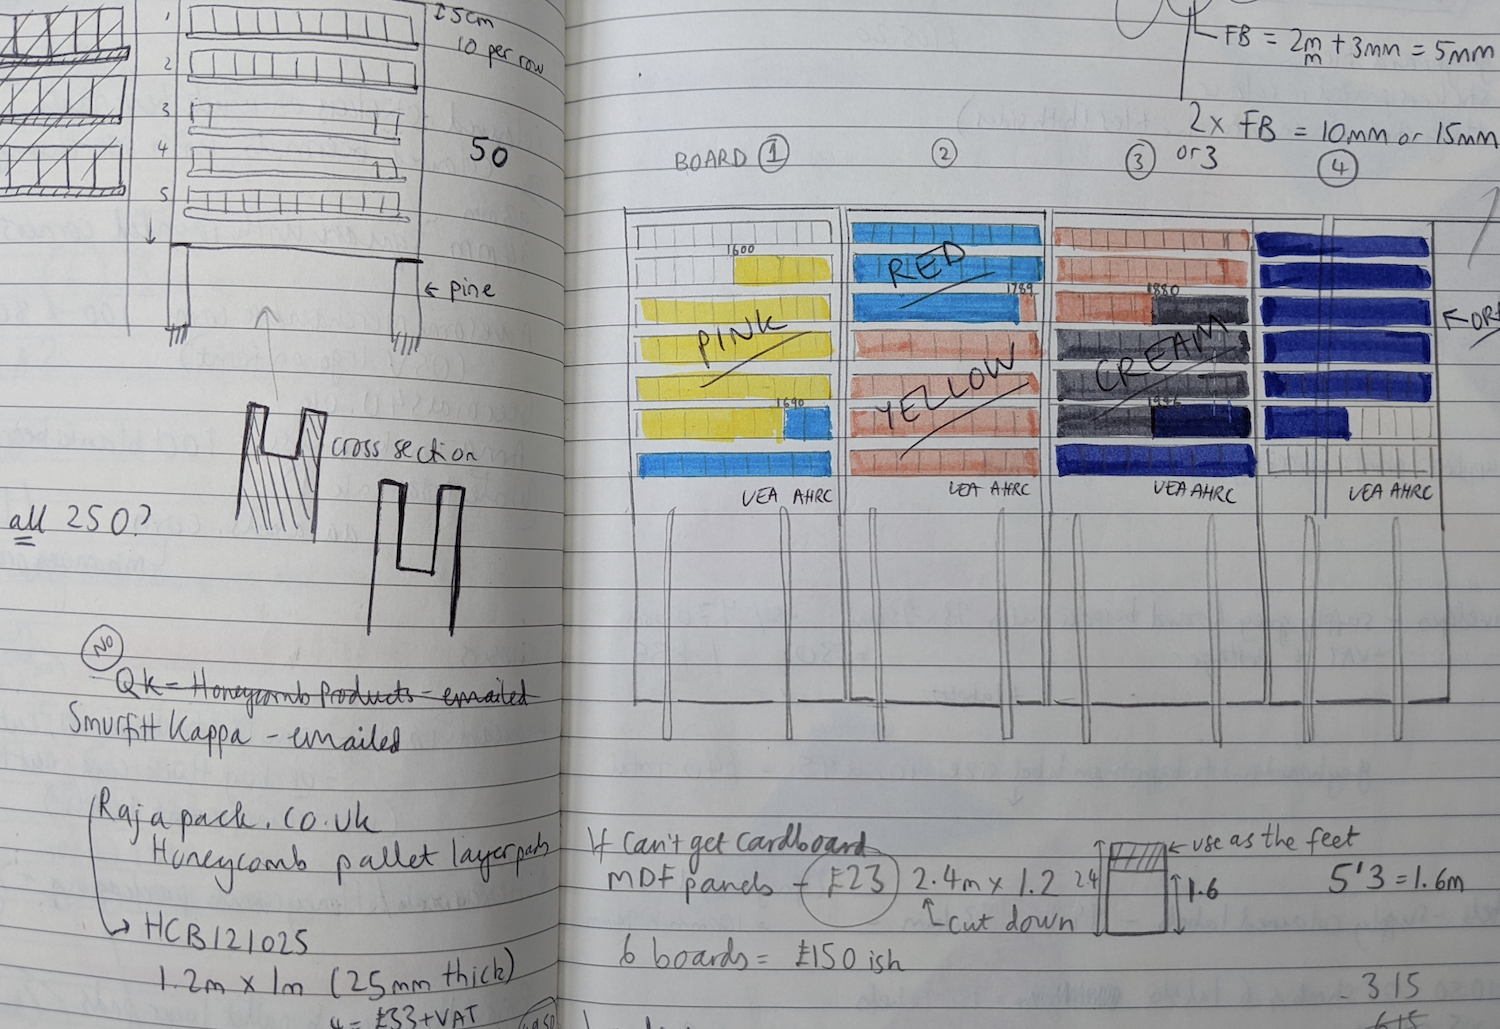 1
2
3
4
5
5cm
10 per row
50
← pine
cross section
all 250?
NO
QK - Honeycomb Products - emailed
Smurfitt Kappa - emailed
Rajapack.co.uk
Honeycomb pallet layerpads
HCB121025
1.2m x 1m (25mm thick)
4 = £33+VAT
FB = 2mm + 3mm = 5mm
2 x FB = 10mm or 15mm
or 3
BOARD 1
2
3
4
1600
PINK
1690
RED
1789
YELLOW
1880
CREAM
1996
← OR
VEA AHRC
VEA AHRC
VEA AHRC
VEA AHRC
If can't get cardboard
MDF panels - £23 2.4m x 1.2
cut down
6 boards = £150 ish
2.4
← use as the feet
1.6
5'3 = 1.6m
315
615